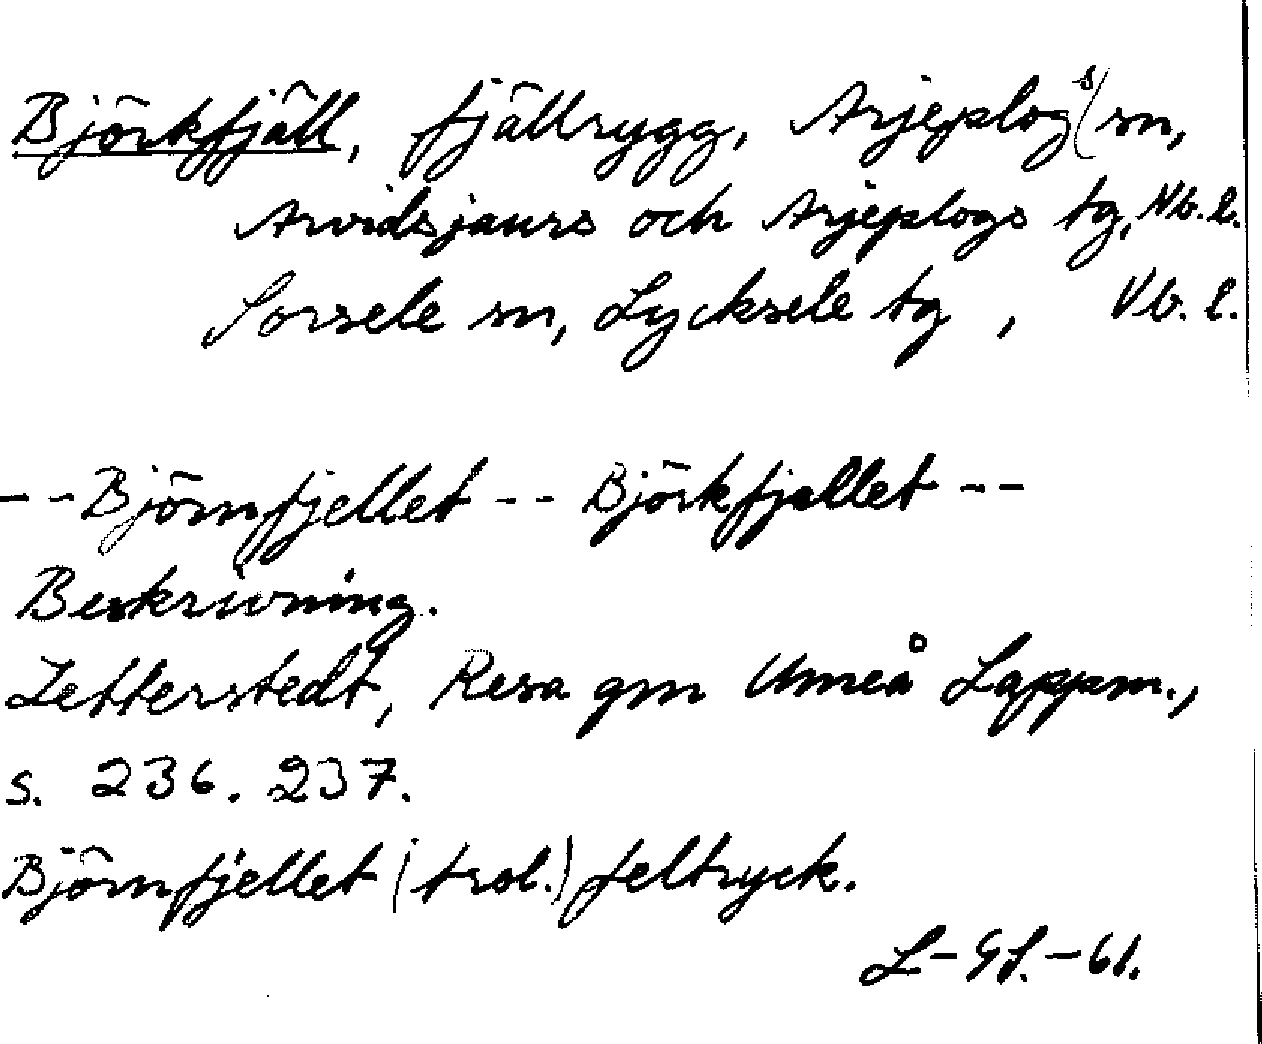 Björkfjäll, fjällrygg, Arjeplogs sn,
Arvidsjaurs och Arjeplogs tg, Nb. l.
Sorsele sn, Lycksele tg, Vb. l.
- - Björnfjellet - - Björkfjället - -
Beskrivning.
Zetterstedt, Resa gm Umeå Lappm.,
s. 236. 237.
Björnfjellet (trol.) feltryck.
L-GS.-61.